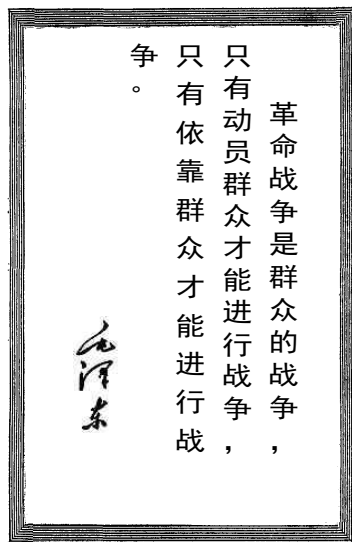 革命战争是群众的战争，
只有动员群众才能进行战争，
只有依靠群众才能进行战
争。
毛泽东